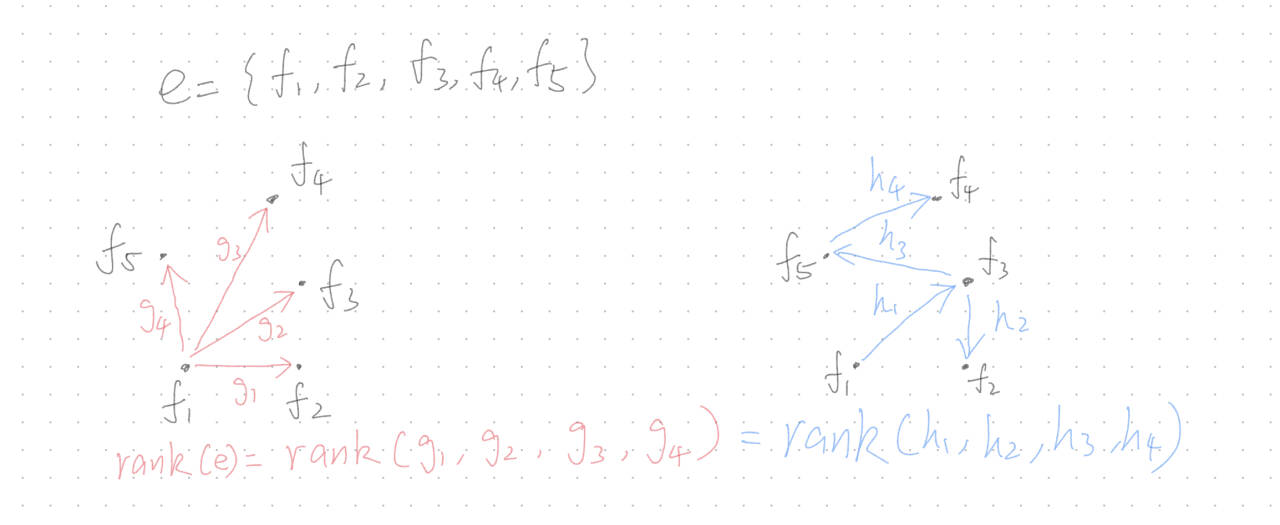 e = {f₁, f₂, f₃, f₄, f₅}
f₄
f₅
g₃
f₃
g₄
g₂
g₁
f₁
f₂
f₄
h₄
h₃
f₅
f₃
h₁
h₂
f₁
f₂
rank(e) = rank(g₁, g₂, g₃, g₄) = rank(h₁, h₂, h₃, h₄)